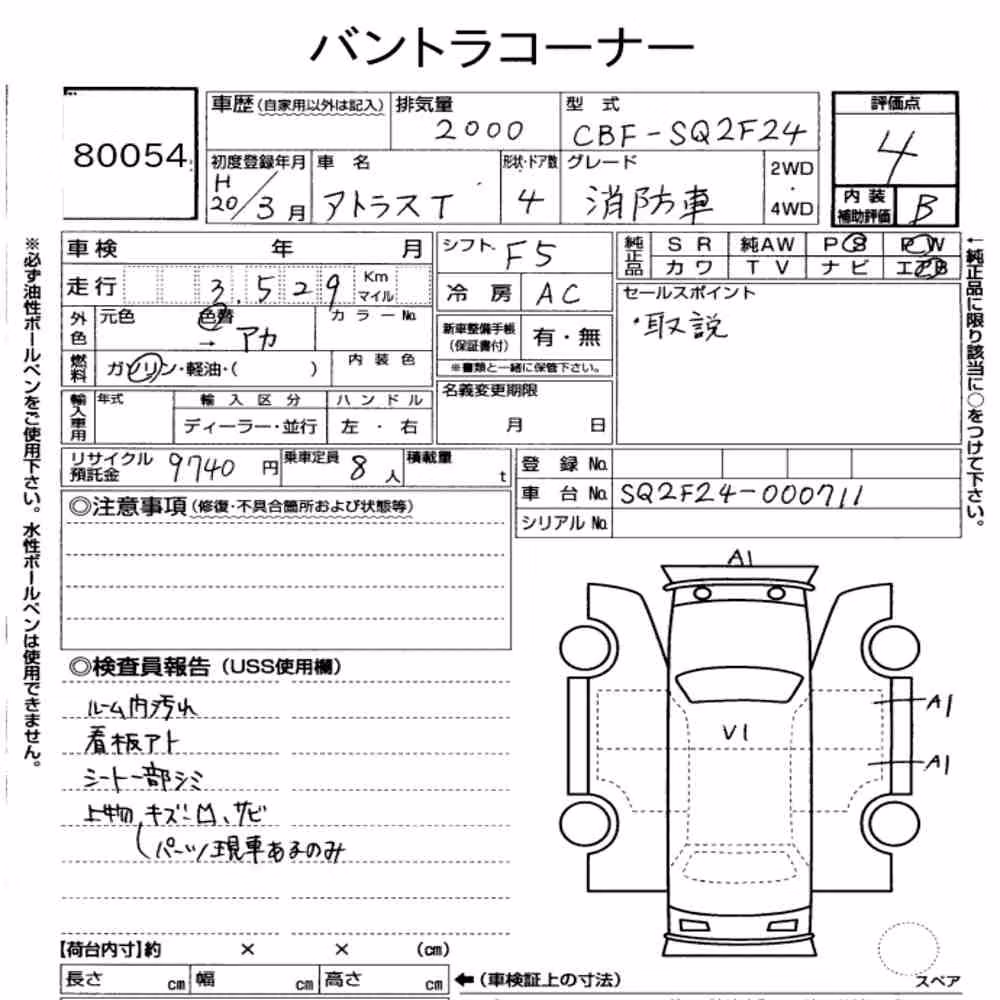 バントラコーナー
80054
車歴 (自家用以外は記入) 排気量 型式 評価点
2000 CBF-SQ2F24 4
初度登録年月 車名 形状・ドア数 グレード 2WD・4WD 内装補助評価
H20/3月 アトラスT 4 消防車 B
※必ず油性ボールペンをご使用下さい。水性ボールペンは使用できません。
車検 年 月
走行 3.529 Km マイル
外色 元色 色替 → アカ カラーNo.
燃料 ガソリン・軽油・( ) 内装色
輸入車用 年式 輸入区分 ハンドル
ディーラー・並行 左・右
リサイクル預託金 9740円 乗車定員 8人 積載量 t
シフト F5
冷房 AC
新車整備手帳(保証書付) 有・無
※書類と一緒に保管下さい。
名義変更期限
月 日
純正品 SR 純AW PS PW
カワ TV ナビ エアB
セールスポイント
・取説
←純正品に限り該当に○をつけて下さい。
登録No.
車台No. SQ2F24-000711
シリアルNo.
◎注意事項 (修復・不具合箇所および状態等)
◎検査員報告 (USS使用欄)
ルーム内汚れ
看板アト
シート一部シミ
上物 キズ凹、サビ
パーツ現車あるのみ
A1
V1
A1
A1
スペア
【荷台内寸】約 × × (cm)
長さ cm 幅 cm 高さ cm ←(車検証上の寸法)